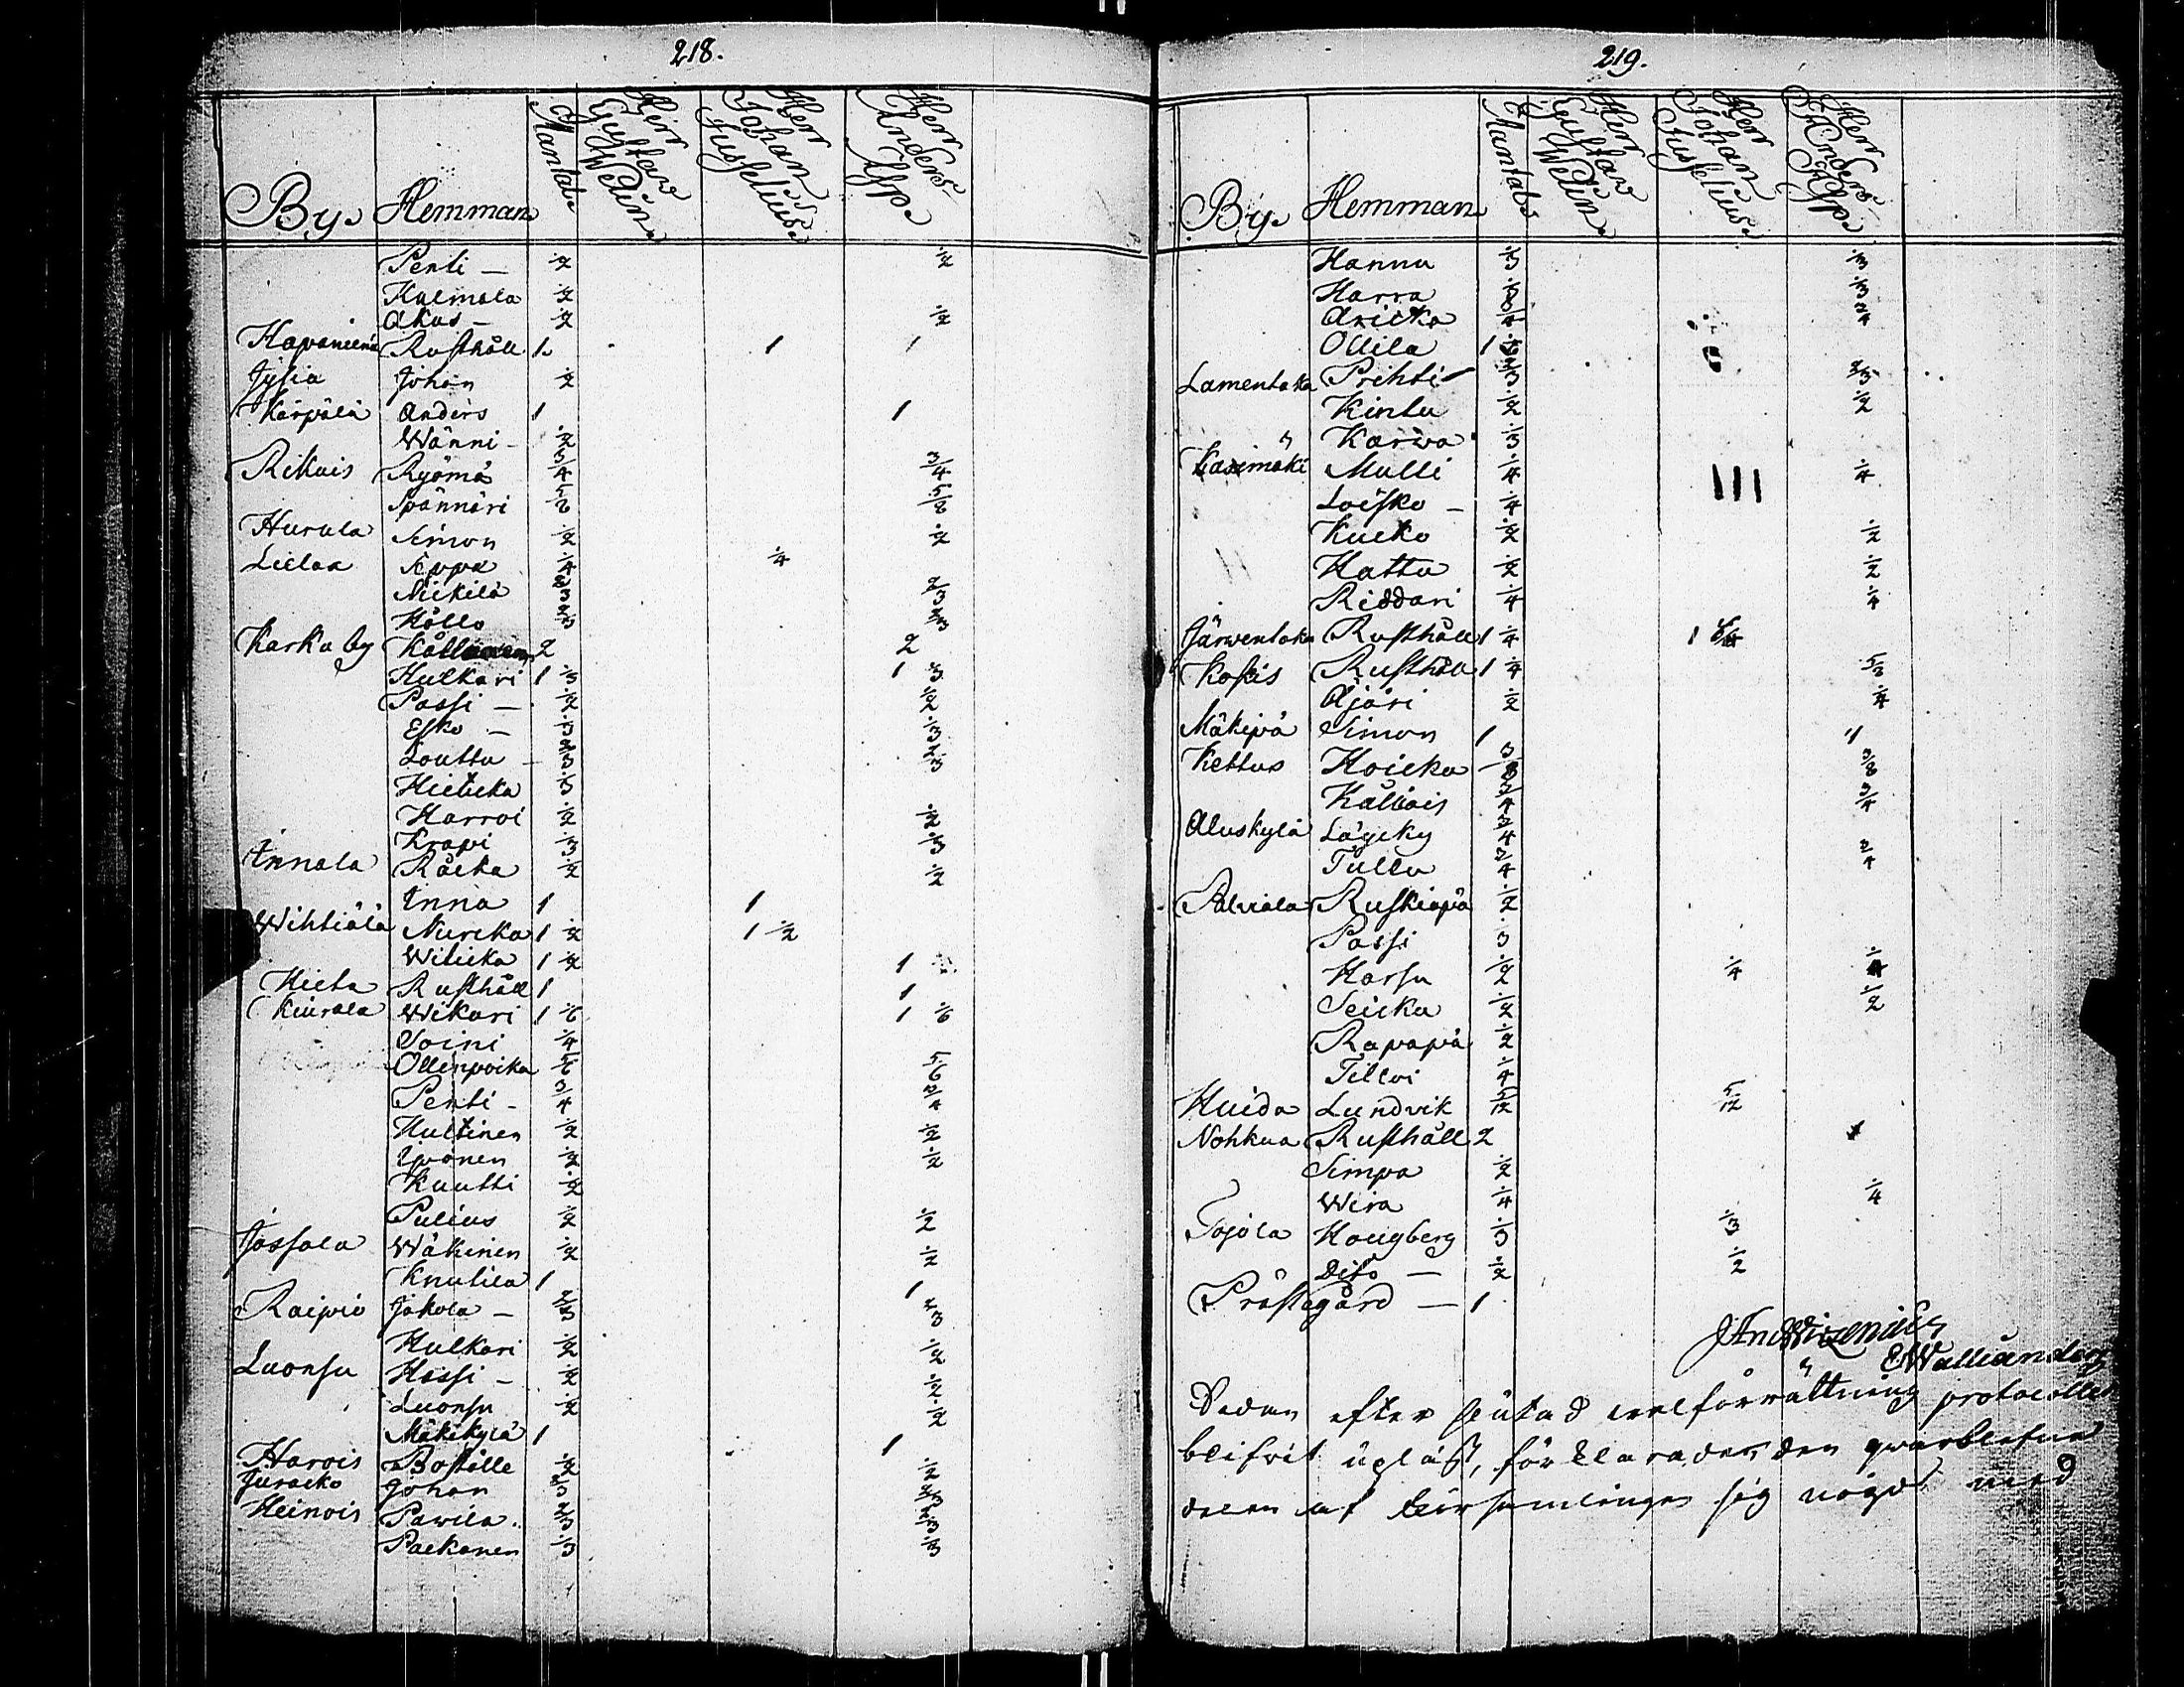 218.
By. Hemman Mantal. Herr Gustav Wedin. Herr Johan Jusselius. Herr Anders Alp.
Penti — 1/2 1/2
Kulmala 1/2
Akus — 1/2 1/2
Haponiemi Rusthåll 1. 1 1
Jysia Johan 1/2
Kärpälä Anders 1 1
Wänni — 1/2
Rikais Ryömä 3/4 3/4
Spännäri 5/8 5/8
Hurula Simon 1/2 1/2
Lielax Seppä 1/4 1/4
Nickilä 2/3 2/3
Hollo 2/3 2/3
Karku by 2 2
Hulkari 1 1/3 1 1/3
Passi — 1/2 1/2
Esko — 1/3 1/3
Louttu — 2/3 2/3
Hieticka 1/3
Harroi 1/2 1/2
Krapi 1/3 1/3
Innala Räcka 1/2 1/2
Inna 1 1
Wihtiälä Nurcka 1 1/2 1 1/2
Witicka 1 1/2 1
Hieta Rusthåll 1 1
Kiurala Wikari 1 1/6 1 1/6
Soini 1/4
Ollinpoika 5/6 5/6
Penti — 3/4 3/4
Hultinen 1/2 1/2
Iponen 1/2 1/2
Kuutti 1/2
Pulius 1/2 1/2
Jossala Wäkinen 1/2 1/2
Knutila 1 1
Raipio Jakola — 2/3 2/3
Hulkari 1/2 1/2
Luonsu Hossi — 1/2 1/2
Luonsu 1/2 1/2
Mäkikylä 1 1
Harois Boställe 1/2 1/2
Juracko Johan 2/3 2/3
Heinois Pawila. 2/3 2/3
Packanen 1/3 1/3
219.
By. Hemman Mantal. Herr Gustav Wedin. Herr Johan Jusselius. Herr Anders Alp.
Hannu 1/3 1/3
Harra 1/3 1/3
Aricka 3/4 3/4
Ollila 1
Lamentaka Prihti 2/3 2/3
Kintu 1/2 1/2
Karwa 1/3
Mulli 1/4 1/4
Loisko — 1/4
Kucko 1/2 1/2
Hattu 1/2 1/2
Riddari 1/4 1/4
Järwentaka Rusthåll 1 1/4 1
Koskis Rusthåll 1 1/4 5/8
Äijäri 1/2 1/4
Mäkipä Simon 1 1
Kettus Hoicka 3/8 3/8
Källois 3/4 3/4
Aluskylä Läycky 3/4
Tullu 3/4 3/4
Palviala Ruskiapä 1/2
Passi 1/3
Harsu 1/2 1/4 1/4
Seicka 1/2 1/2
Rapapä 1/2
Tilloi 1/4
Huida Lundvik 5/12 5/12
Nohkua Rusthåll 2 1
Simpa 1/2
Wira 1/4 1/4
Tojola Hougberg 1/3 1/3
Dito — 1/2 1/2
Prästegård — 1
Sedan efter slutad walförrättning protocollet
blifvit upläst, förklarade den qwarblefne
delen af församlingen sig nögd med